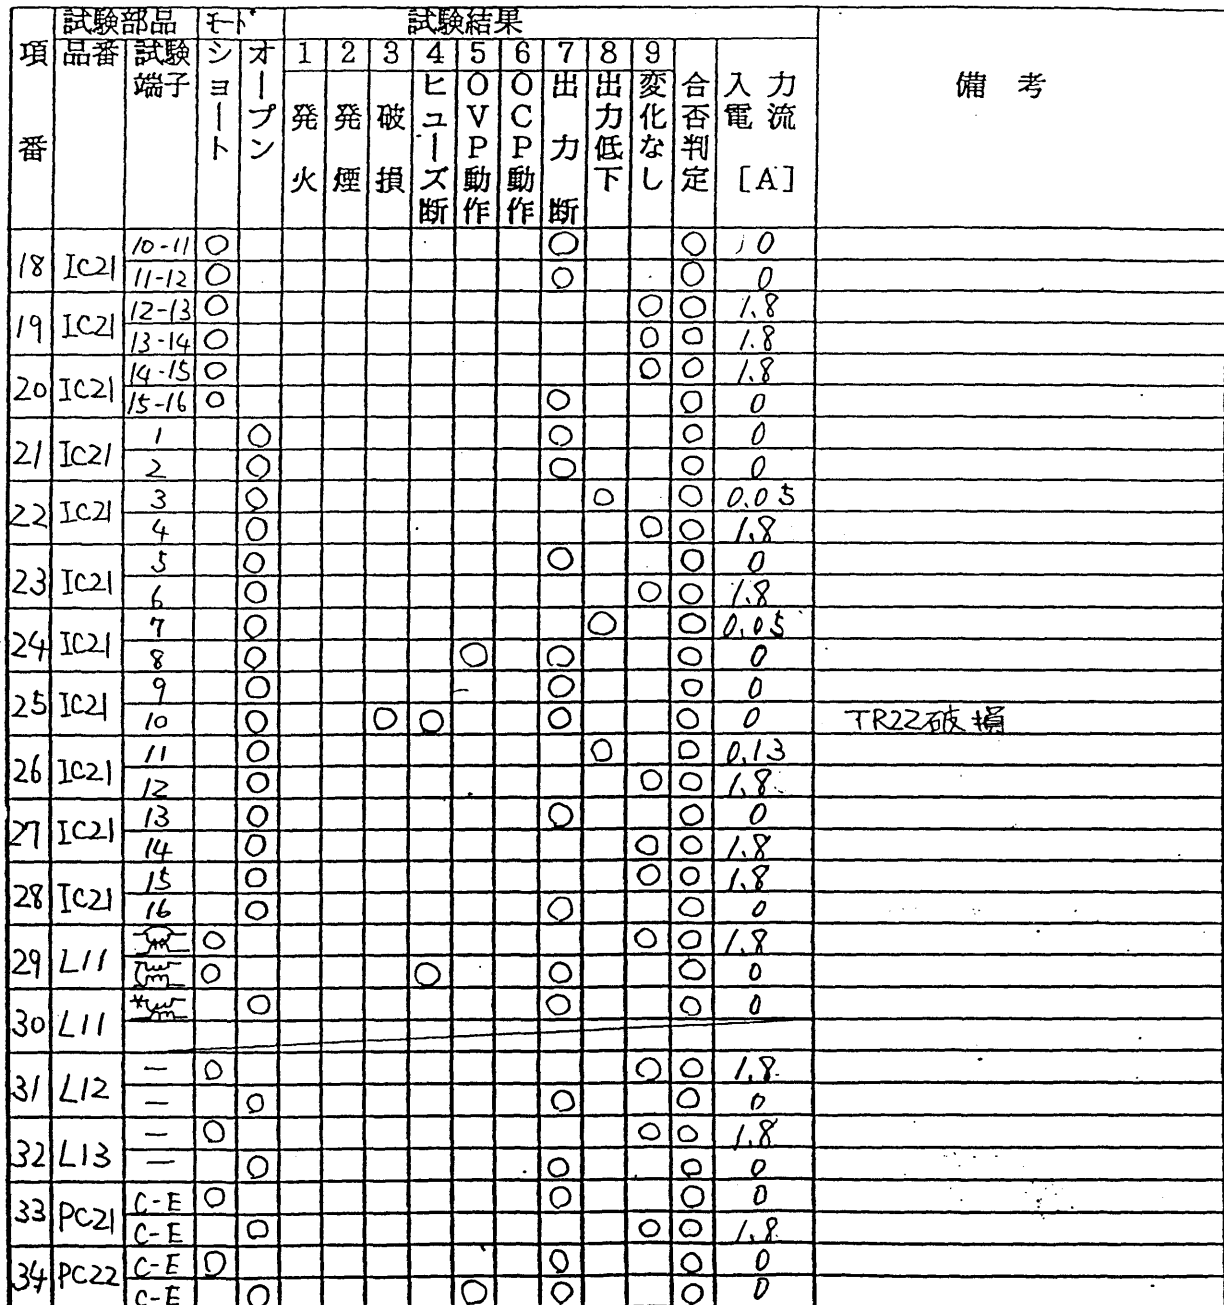 試験部品 モード 試験結果
項番 品番 試験端子 ショート オープン 1 発火 2 発煙 3 破損 4 ヒューズ断 5 OVP動作 6 OCP動作 7 出力断 8 出力低下 9 変化なし 合否判定 入力電流[A] 備考
18 IC21 10-11 ○ ○ ○ 0
11-12 ○ ○ ○ 0
19 IC21 12-13 ○ ○ ○ 1.8
13-14 ○ ○ ○ 1.8
20 IC21 14-15 ○ ○ ○ 1.8
15-16 ○ ○ ○ 0
21 IC21 1 ○ ○ ○ 0
2 ○ ○ ○ 0
22 IC21 3 ○ ○ ○ 0.05
4 ○ ○ ○ 1.8
23 IC21 5 ○ ○ ○ 0
6 ○ ○ ○ 1.8
24 IC21 7 ○ ○ ○ 0.05
8 ○ ○ ○ ○ 0
25 IC21 9 ○ ○ ○ 0
10 ○ ○ ○ ○ ○ 0 TR22破損
26 IC21 11 ○ ○ ○ 0.13
12 ○ ○ ○ 1.8
27 IC21 13 ○ ○ ○ 0
14 ○ ○ ○ 1.8
28 IC21 15 ○ ○ ○ 1.8
16 ○ ○ ○ 0
29 L11 ○ ○ ○ 1.8
○ ○ ○ ○ 0
30 L11 * ○ ○ ○ 0
31 L12 — ○ ○ ○ 1.8
— ○ ○ ○ 0
32 L13 — ○ ○ ○ 1.8
— ○ ○ ○ 0
33 PC21 C-E ○ ○ ○ 0
C-E ○ ○ ○ 1.8
34 PC22 C-E ○ ○ ○ 0
C-E ○ ○ ○ ○ 0